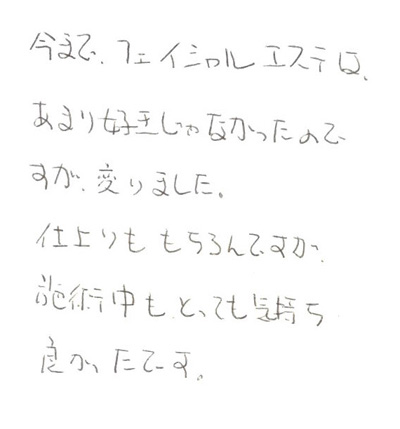 今まで、フェイシャルエステは、
あまり好きじゃなかったので
すが、変りました。
仕上りももちろんですが、
施術中も、とっても気持ち
良かったです。